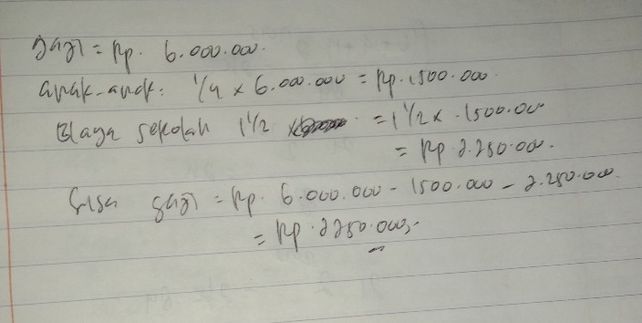 gaji = Rp. 6.000.000.
anak-anak: 1/4 x 6.000.000 = Rp. 1500.000.
Biaya sekolah 1 1/2 = 1 1/2 x .1500.00
= Rp 2.250.000.
Sisa gaji = Rp. 6.000.000 - 1500.000 - 2.250.000.
= Rp. 2250.000,-